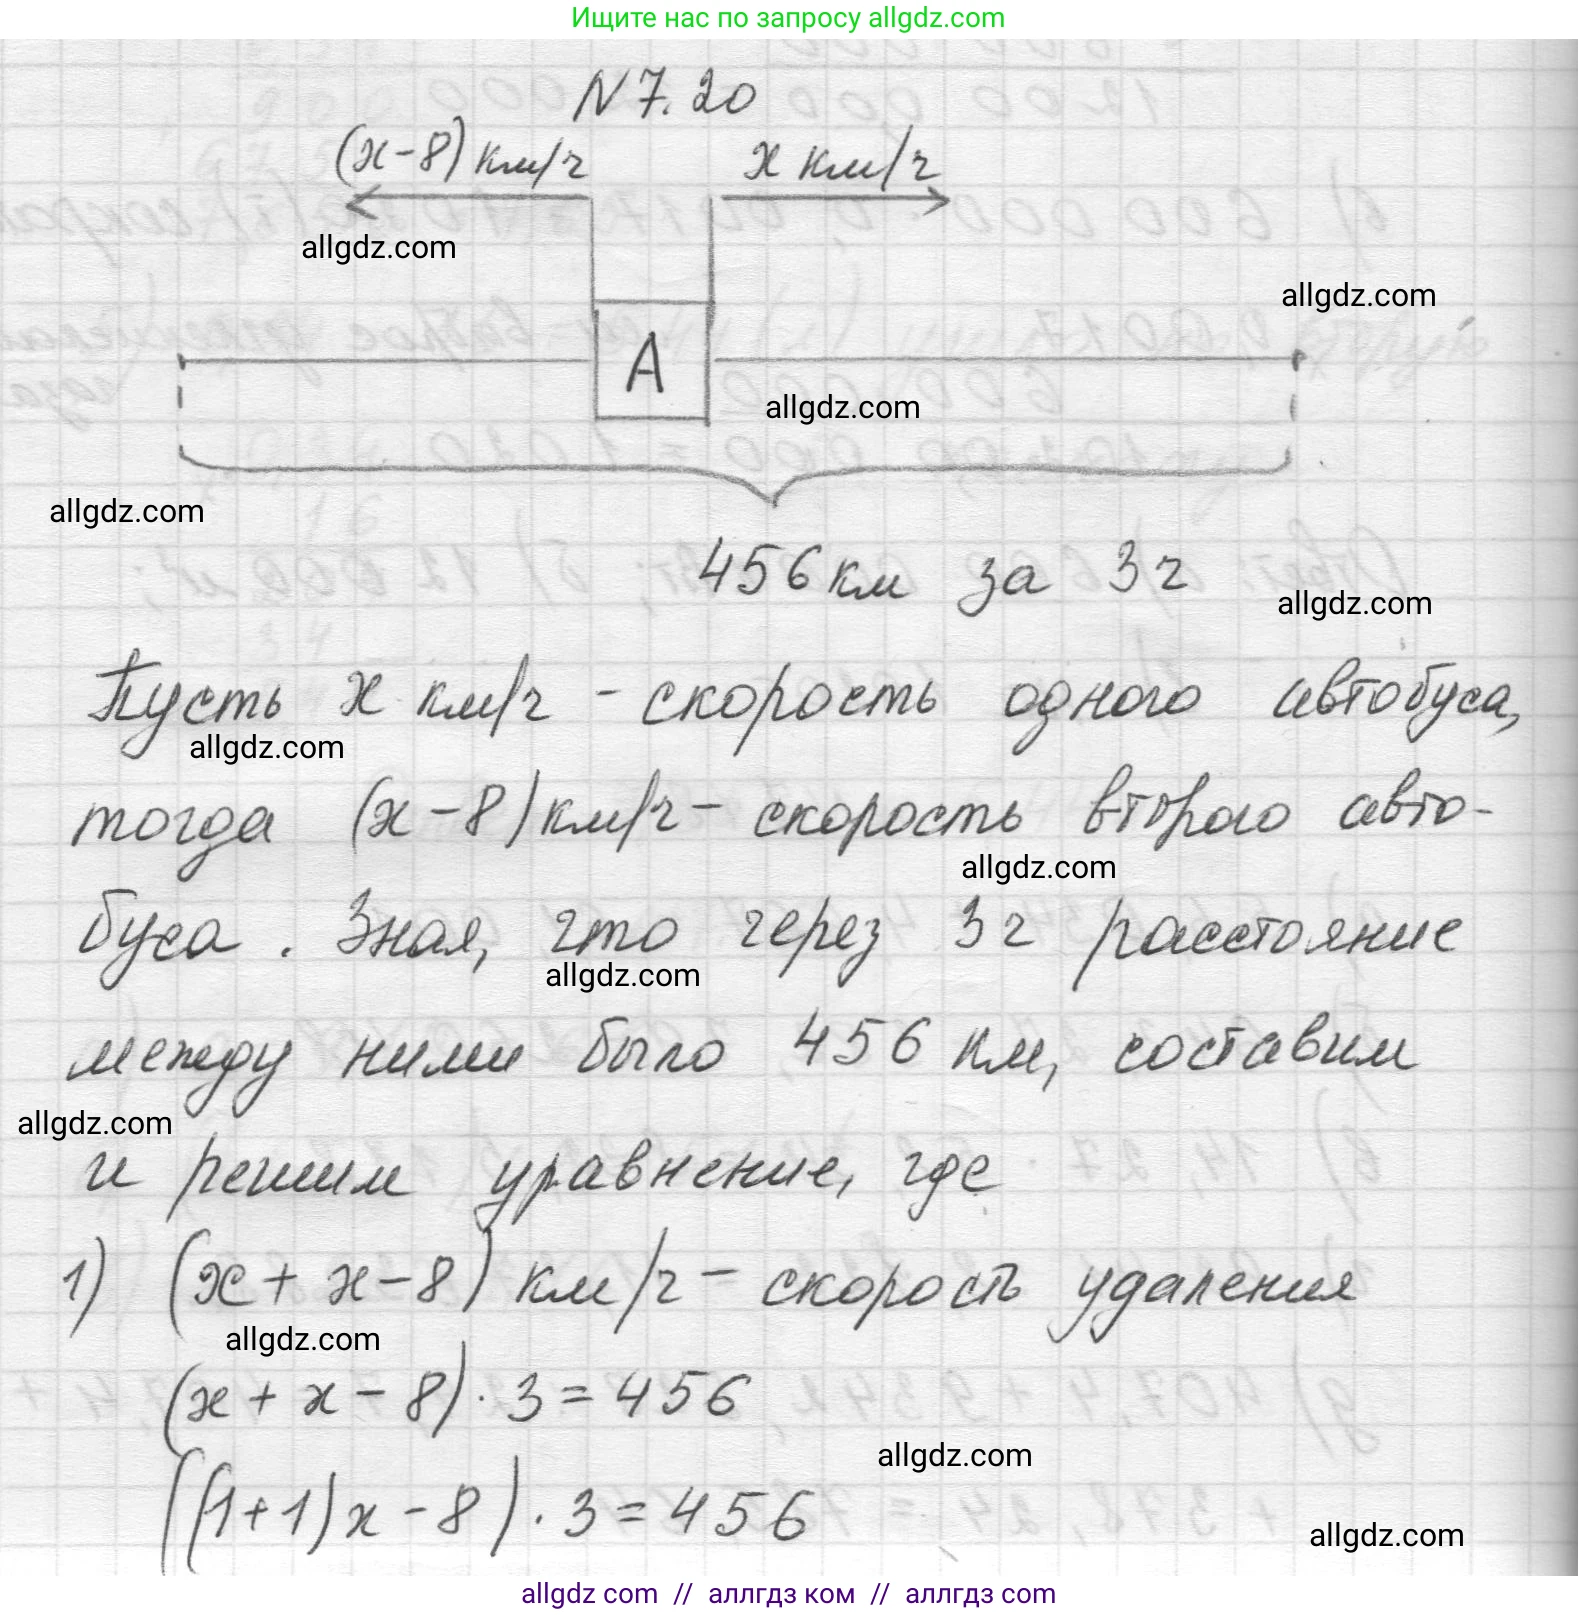 Ищите нас по запросу allgdz.com
N 7.20
(x-8) км/ч x км/ч
allgdz.com
allgdz.com
A
allgdz.com
allgdz.com
456 км за 3 ч
allgdz.com
Пусть x км/ч - скорость одного автобуса,
allgdz.com
тогда (x-8) км/ч - скорость второго авто-
allgdz.com
буса. Зная, что через 3 ч расстояние
allgdz.com
между ними было 456 км, составим
allgdz.com
и решим уравнение, где
1) (x + x - 8) км/ч - скорость удаления
allgdz.com
(x + x - 8) · 3 = 456
allgdz.com
((1+1)x - 8) · 3 = 456
allgdz.com
allgdz.com // аллгдз ком // аллгдз com